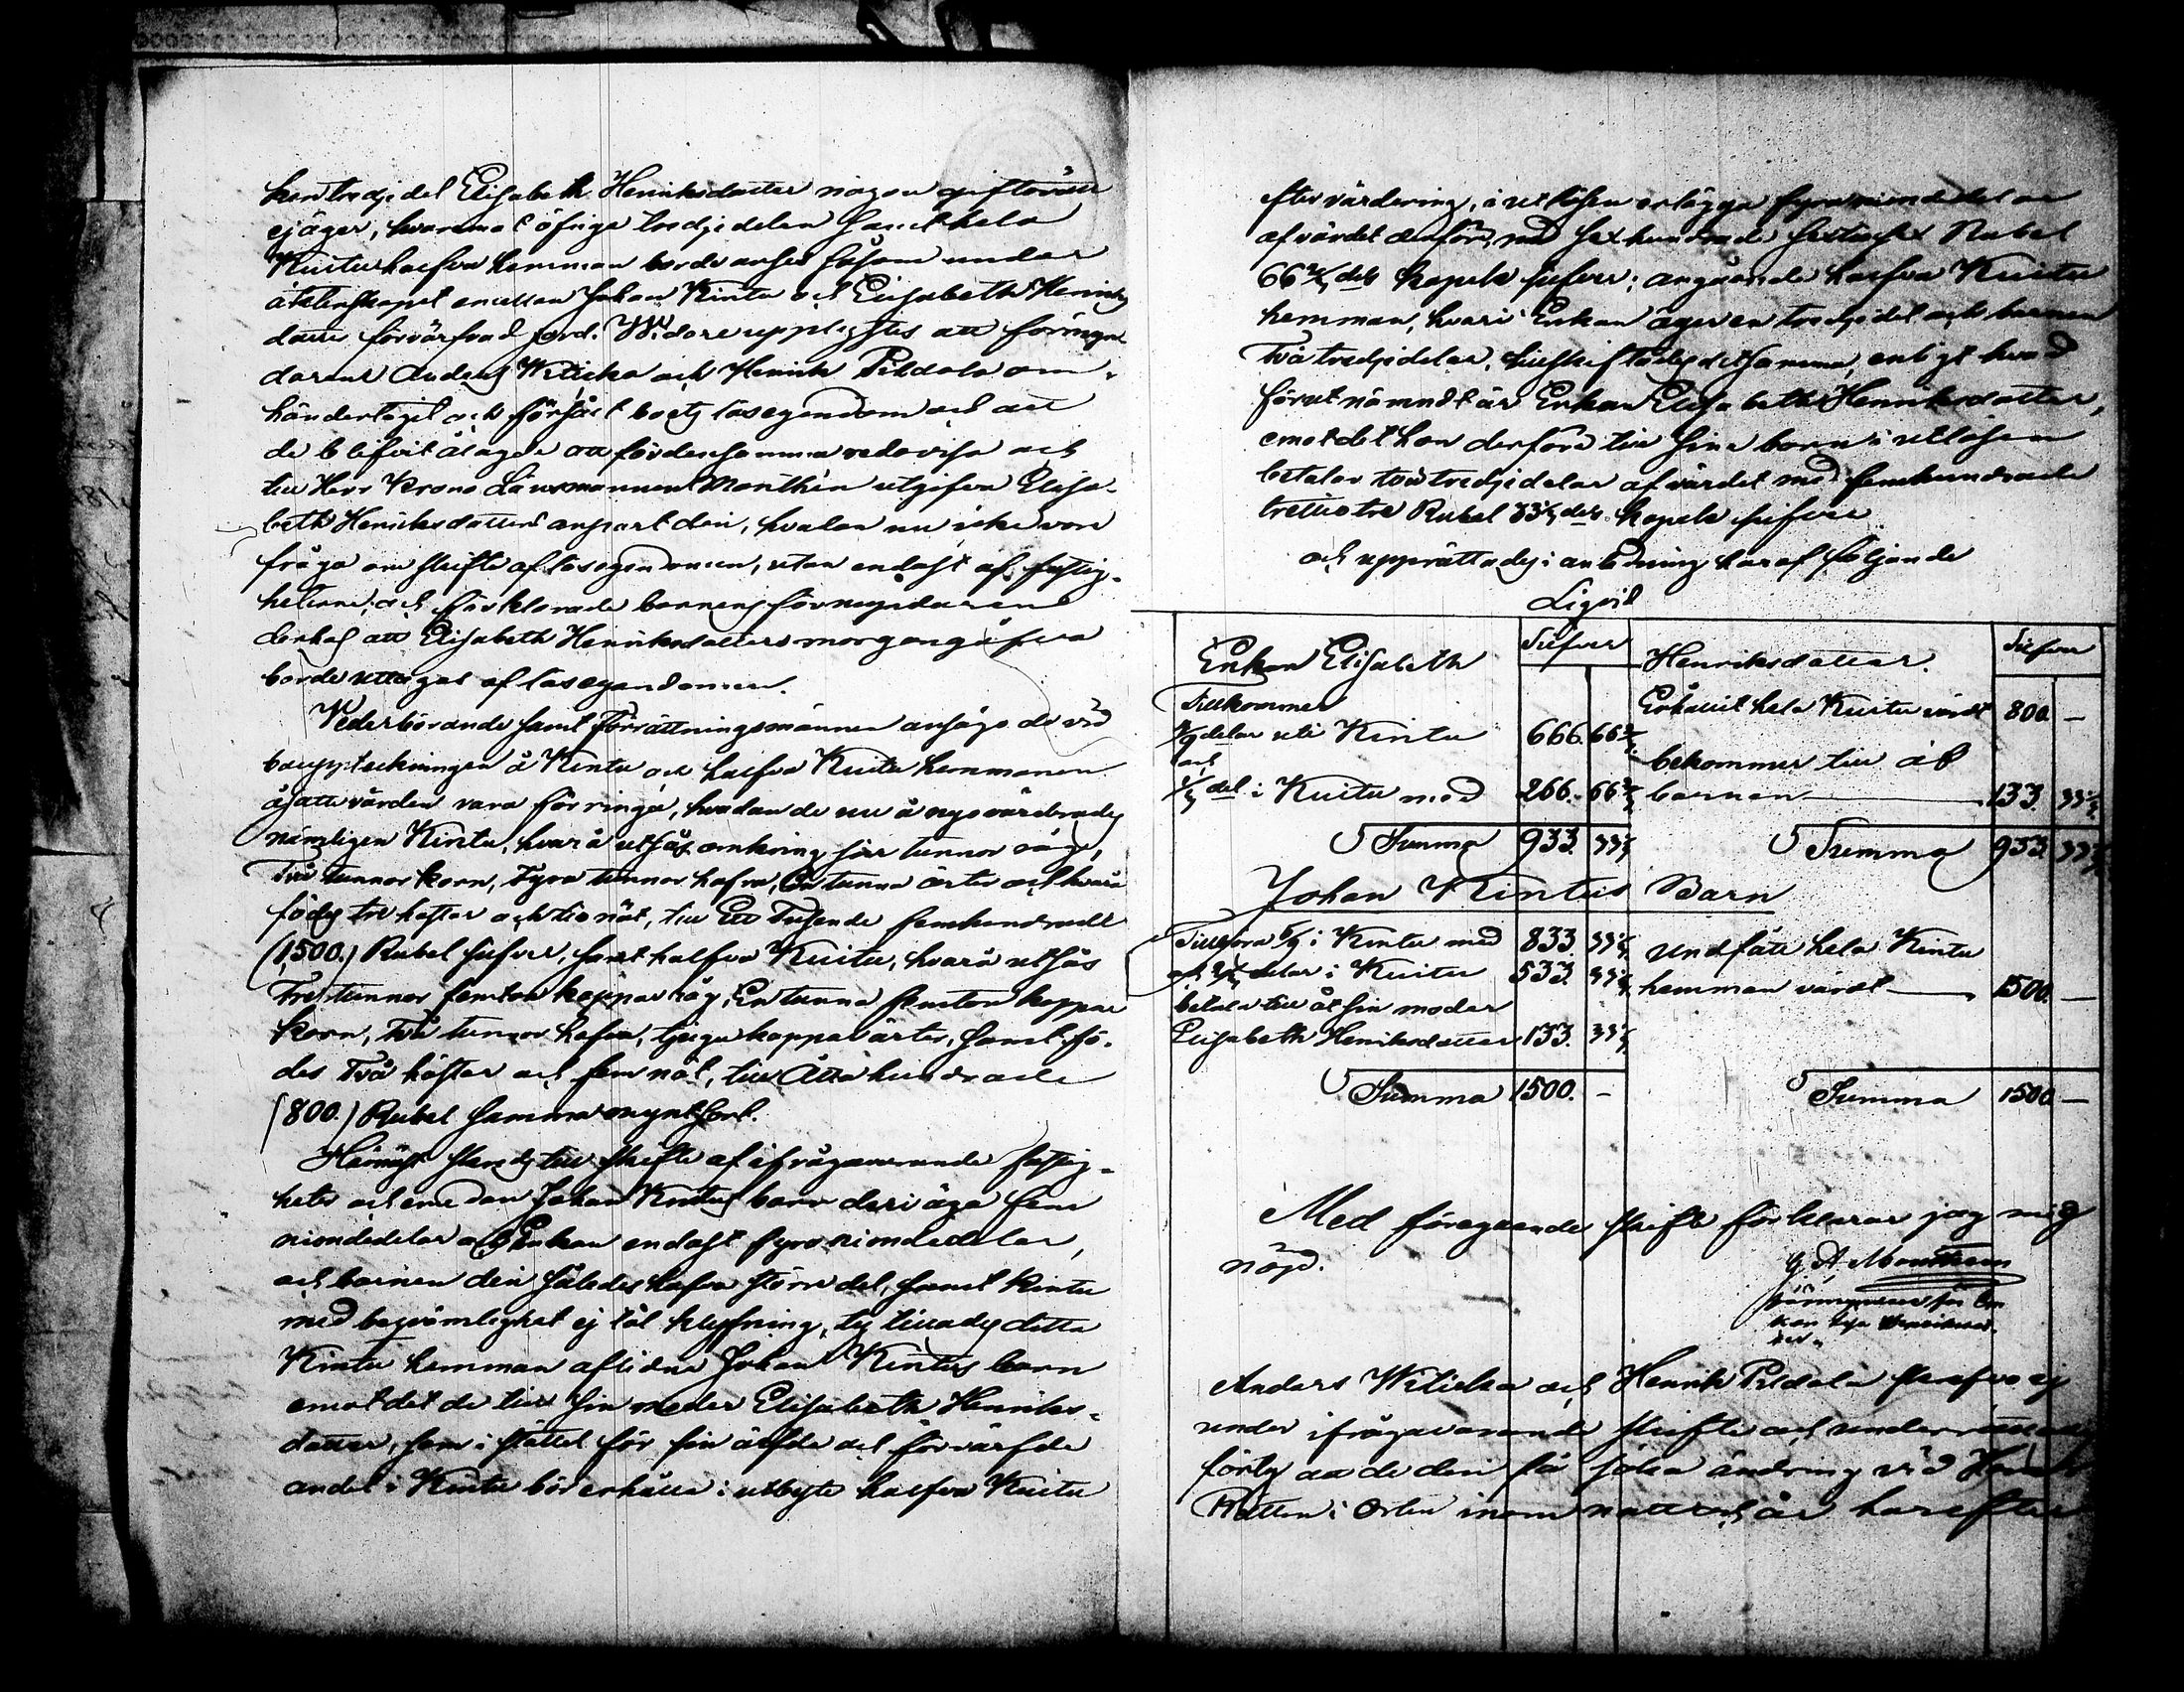 hon tredjedel Elisabeth Henriksdotter någon giftorätt
ej äger, hvaremot öfriga tredjedelen samt hela
Kuitu halfva hemman borde anses såsom under
äktenskapet emellan Johan Kintu och Elisabeth Henriks
dotter förvärfvad jord. Widare upplystes att förmyn
darene Anders Wilicka och Henrik Pildala om-
händertagit och försålt boets lösegendom och att
de blifvit ålagde att för densamma redovisa och
till Herr Krono Länsmannen Monthén utgifva Elisa-
beth Henriksdotters anpart deri, hvadan nu icke vore
fråga om skifte af lösegendomen, utan endast af fastig-
heterne; och förklarade barnens förmyndarene
derhos att Elisabeth Henriksdotters morgongåfva
borde uttagas af lösegendomen.
Vederbörande samt Förrättningsmännen ansågo de vid
bouppteckningen å Kintu och halfva Kuitu hemmanen
åsatte värden vara för ringa, hvadan de nu å nyo värderades
nämligen Kintu, hvarå utsås omkring fyra tunnor råg,
Två tunnor korn, Fyra tunnor hafra, En tunna ärter och hvarå
födes tre hästar och tio nöt, till Ett Tusende femhundrade
(1,500.) Rubel silfver, samt halfva Kuitu, hvarå utsås
Tre tunnor femton kappar råg, En tunna femton kappar
korn, Två tunnor hafra, tjugu kappar ärter, samt fö-
des Två hästar och fem nöt, till Åtta hundrade
(800.) Rubel samma myntsort.
Härnäst skreds till skifte af ifrågavarande fastig-
heter och emedan Johan Kintus barn deri äga fem
niondedelar och Enkan endast fyra niondedelar,
och barnen deri således hafva större del, samt Kintu
med beqvämlighet ej tål klyfning, ty tillades detta
Kintu hemman aflidne Johan Kintus barn
emot det de till sin moder Elisabeth Henriks-
dotter, som i stället för sin ärfde och förvärfde
andel i Kintu bör erhålla i utbyte halfva Kuitu
efter värdering, i utlösen erlägga fyra niondedelar
af värdet derför med sexhundrade sextiosex Rubel
66 2/3 dels kopek silfver; angående halfva Kuitu
hemman, hvari Enkan äger en tredjedel och barnen
Två tredjedelar, tillskiftades detsamma, enligt hvad
förut nämndt är Enkan Elisabeth Henriksdotter,
emot det hon derföre till sina barn i utlösen
betalar två tredjedelar af värdet med femhundrade
trettiotre Rubel 33 1/3 dels kopek silfver
och upprättades i anledning häraf följande
Liqvid
Enkan Elisabeth Silfver Henriksdotter. Silfver
Tillkommer Erhållit hela Kuitu värdt 800. —
4/9 delar uti Kintu 666. 66 2/3
och bekommer till af
1/3 del i Kuitu med 266. 66 2/3 barnen — 133. 33 1/3
Summa 933. 33 1/3 Summa 933. 33 1/3
Johan Kintus Barn
Tillhöra 5/9 i Kintu med 833. 33 1/3 Undfått hela Kintu
och 2/3 delar i Kuitu 533. 33 1/3 hemman värdt — 1500. —
betala till åt sin moder
Elisabeth Henriksdotter 133. 33 1/3
Summa 1500. — Summa 1500. —
Med föregående skifte förklarar jag mig
nöjd.
G. A. Monthén
förmyndare för En
kan Lisa Henriksdot
ter
Anders Wilicka och Henrik Pildala skrefvo ej
under ifrågavarande skifte och underrättades
förty att de deri få söka ändring vid Härads
Rätten i Orten inom natt och år härefter